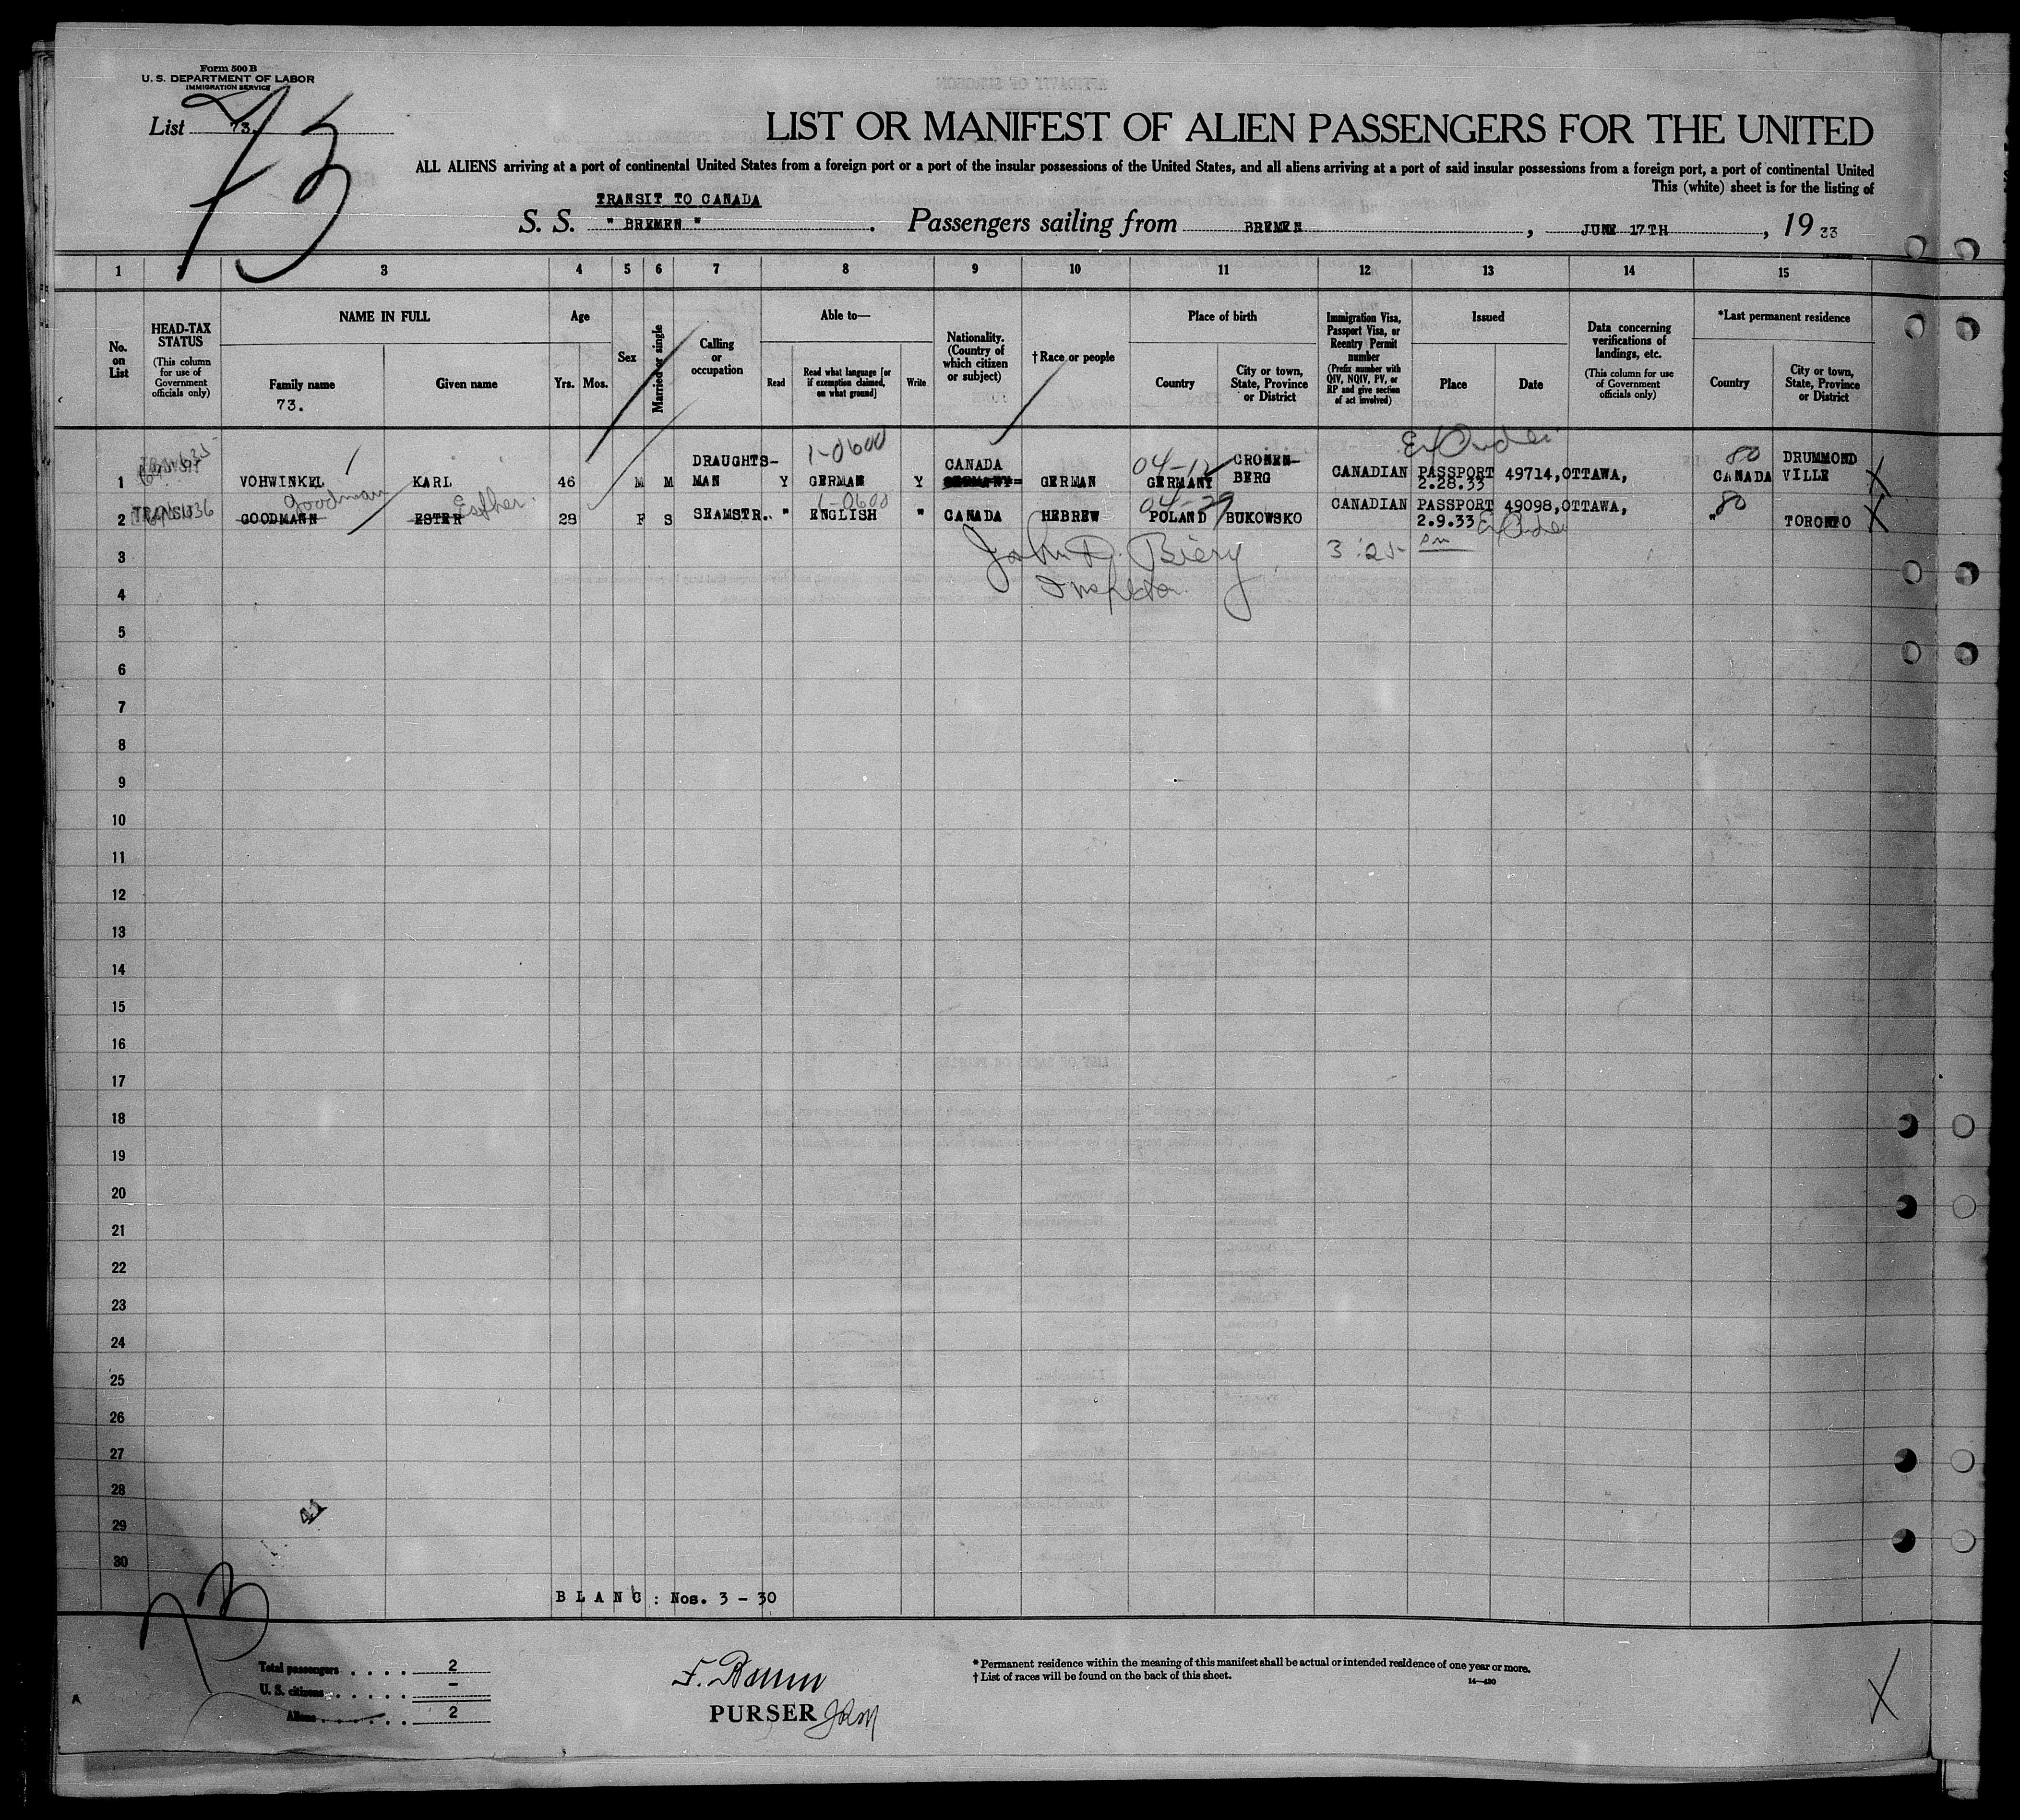 Form 500 B
U. S. DEPARTMENT OF LABOR
IMMIGRATION SERVICE
List 73.
73
LIST OR MANIFEST OF ALIEN PASSENGERS FOR THE UNITED
ALL ALIENS arriving at a port of continental United States from a foreign port or a port of the insular possessions of the United States, and all aliens arriving at a port of said insular possessions from a foreign port, a port of continental United
This (white) sheet is for the listing of
TRANSIT TO CANADA
S. S. " BREMEN " . Passengers sailing from BREMEN , JUNE 17TH , 19 33
1 3 4 5 6 7 8 9 10 11 12 13 14 15
No. on List
HEAD-TAX STATUS
(This column for use of Government officials only)
NAME IN FULL
Family name
73.
Given name
Age
Yrs. Mos.
Sex
Married or single
Calling or occupation
Able to—
Read
Read what language [or if exemption claimed, on what ground]
Write
Nationality. (Country of which citizen or subject)
†Race or people
Place of birth
Country
City or town, State, Province or District
Immigration Visa, Passport Visa, or Reentry Permit number
(Prefix number with QIV, NQIV, PV, or RP and give section of act involved)
Issued
Place
Date
Data concerning verifications of landings, etc.
(This column for use of Government officials only)
*Last permanent residence
Country
City or town, State, Province or District
1-0600
DRAUGHTS- CANADA 04-12 CRONEN- 80 DRUMMOND
1 VOHWINKEL KARL 46 M M MAN Y GERMAN Y GERMANY GERMAN GERMANY BERG CANADIAN PASSPORT 49714,OTTAWA, CANADA VILLE X
2.28.33
Goodman Esther 1-0600 04-29 80
2 TRANSIT GOODMANN ESTER 29 F S SEAMSTR. " ENGLISH " CANADA HEBREW POLAND BUKOWSKO CANADIAN PASSPORT 49098,OTTAWA, " TORONTO X
2.9.33
3 John D. Biery 3:25 PM
4 Inspector
5
6
7
8
9
10
11
12
13
14
15
16
17
18
19
20
21
22
23
24
25
26
27
28
29
30
BLANC : Nos. 3 - 30
Total passengers . . . . 2
U. S. citizens . . . . . -
Aliens . . . . . . 2
PURSER
* Permanent residence within the meaning of this manifest shall be actual or intended residence of one year or more.
† List of races will be found on the back of this sheet.
14—430
X